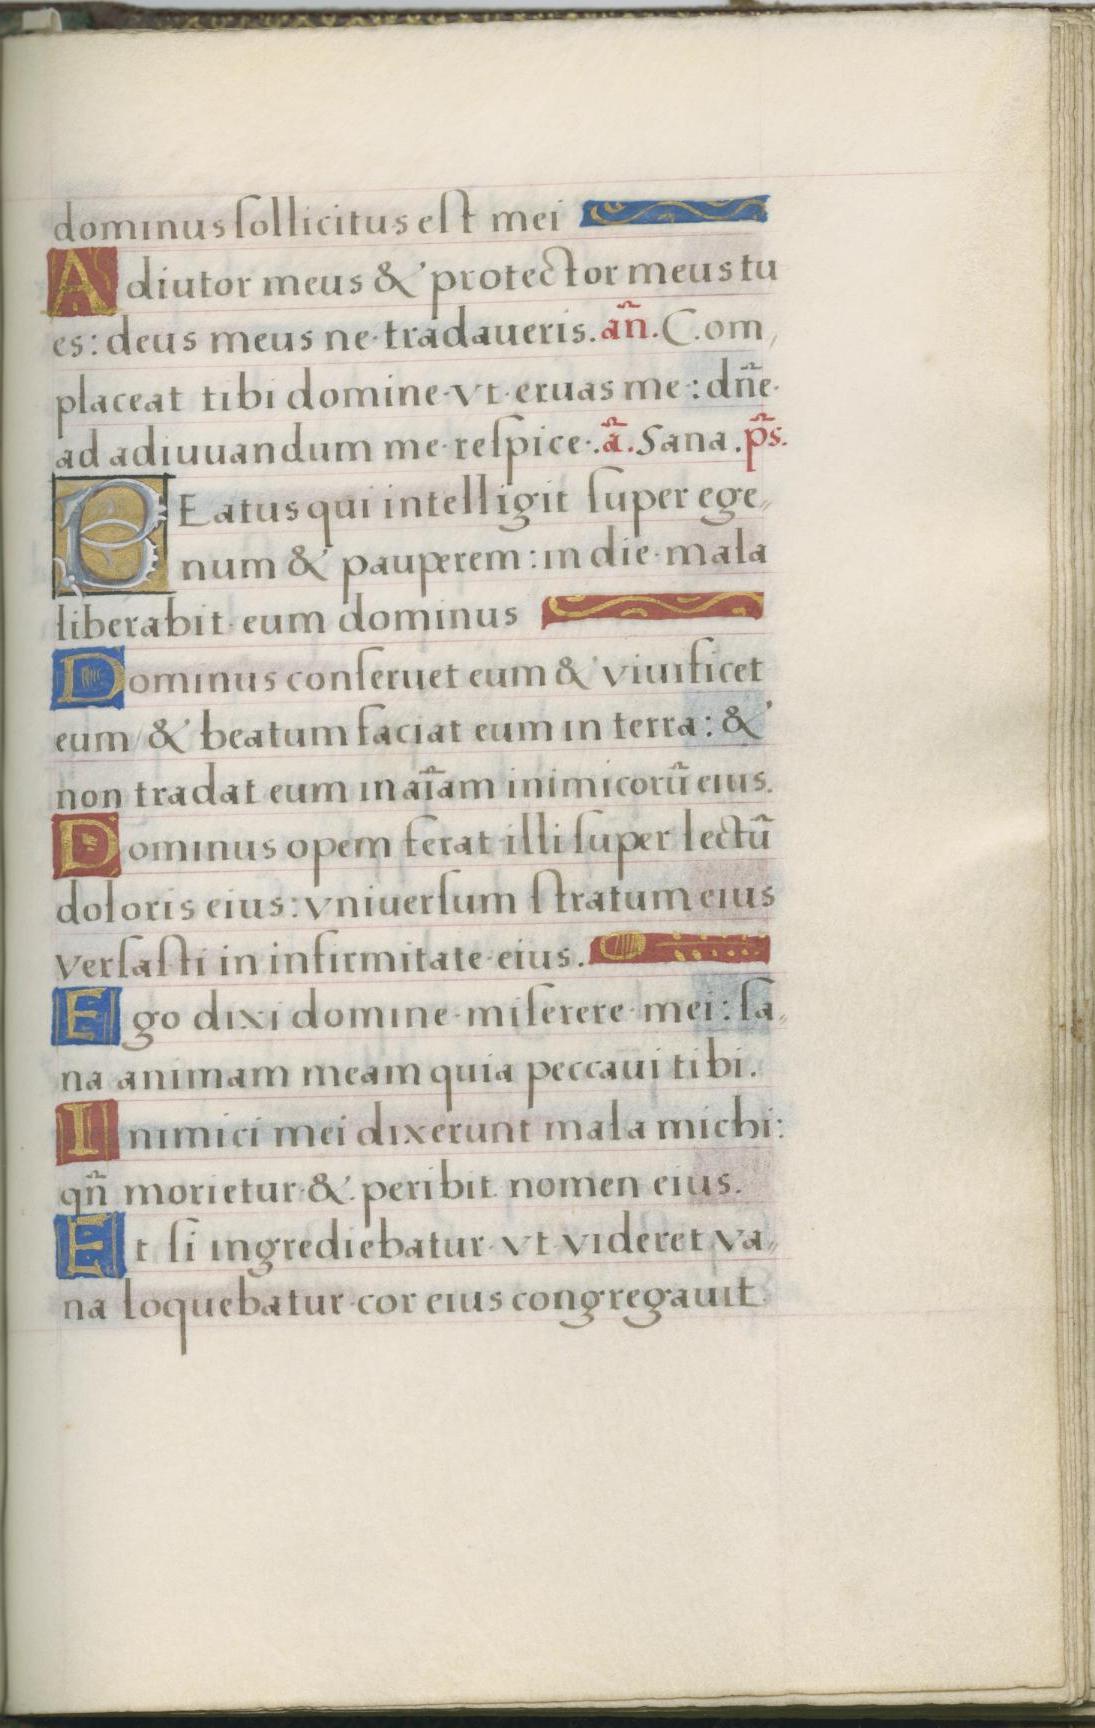 dominus ſollicitus eſt mei
Adiutor meus & protector meus tu
es: deus meus ne tradaueris. añ. Com,
placeat tibi domine vt eruas me: dñe
ad adiuuandum me reſpice. ã. Sana. p̃s.
BEatus qui intelligit ſuper ege〃
num & pauperem: in die mala
liberabit eum dominus
Dominus conſeruet eum & viuificet
eum / & beatum faciat eum in terra: &
non tradat eum in aĩam inimicorũ eius.
Dominus opem ferat illi ſuper lectũ
doloris eius: vniuerſum ſtratum eius
verſaſti in infirmitate eius.
Ego dixi domine miſerere mei: ſa〃
na animam meam quia peccaui tibi.
Inimici mei dixerunt mala michi:
qñ morietur &. peribit nomen eius.
Et ſi ingrediebatur vt videret va〃
na loquebatur cor eius congregauit